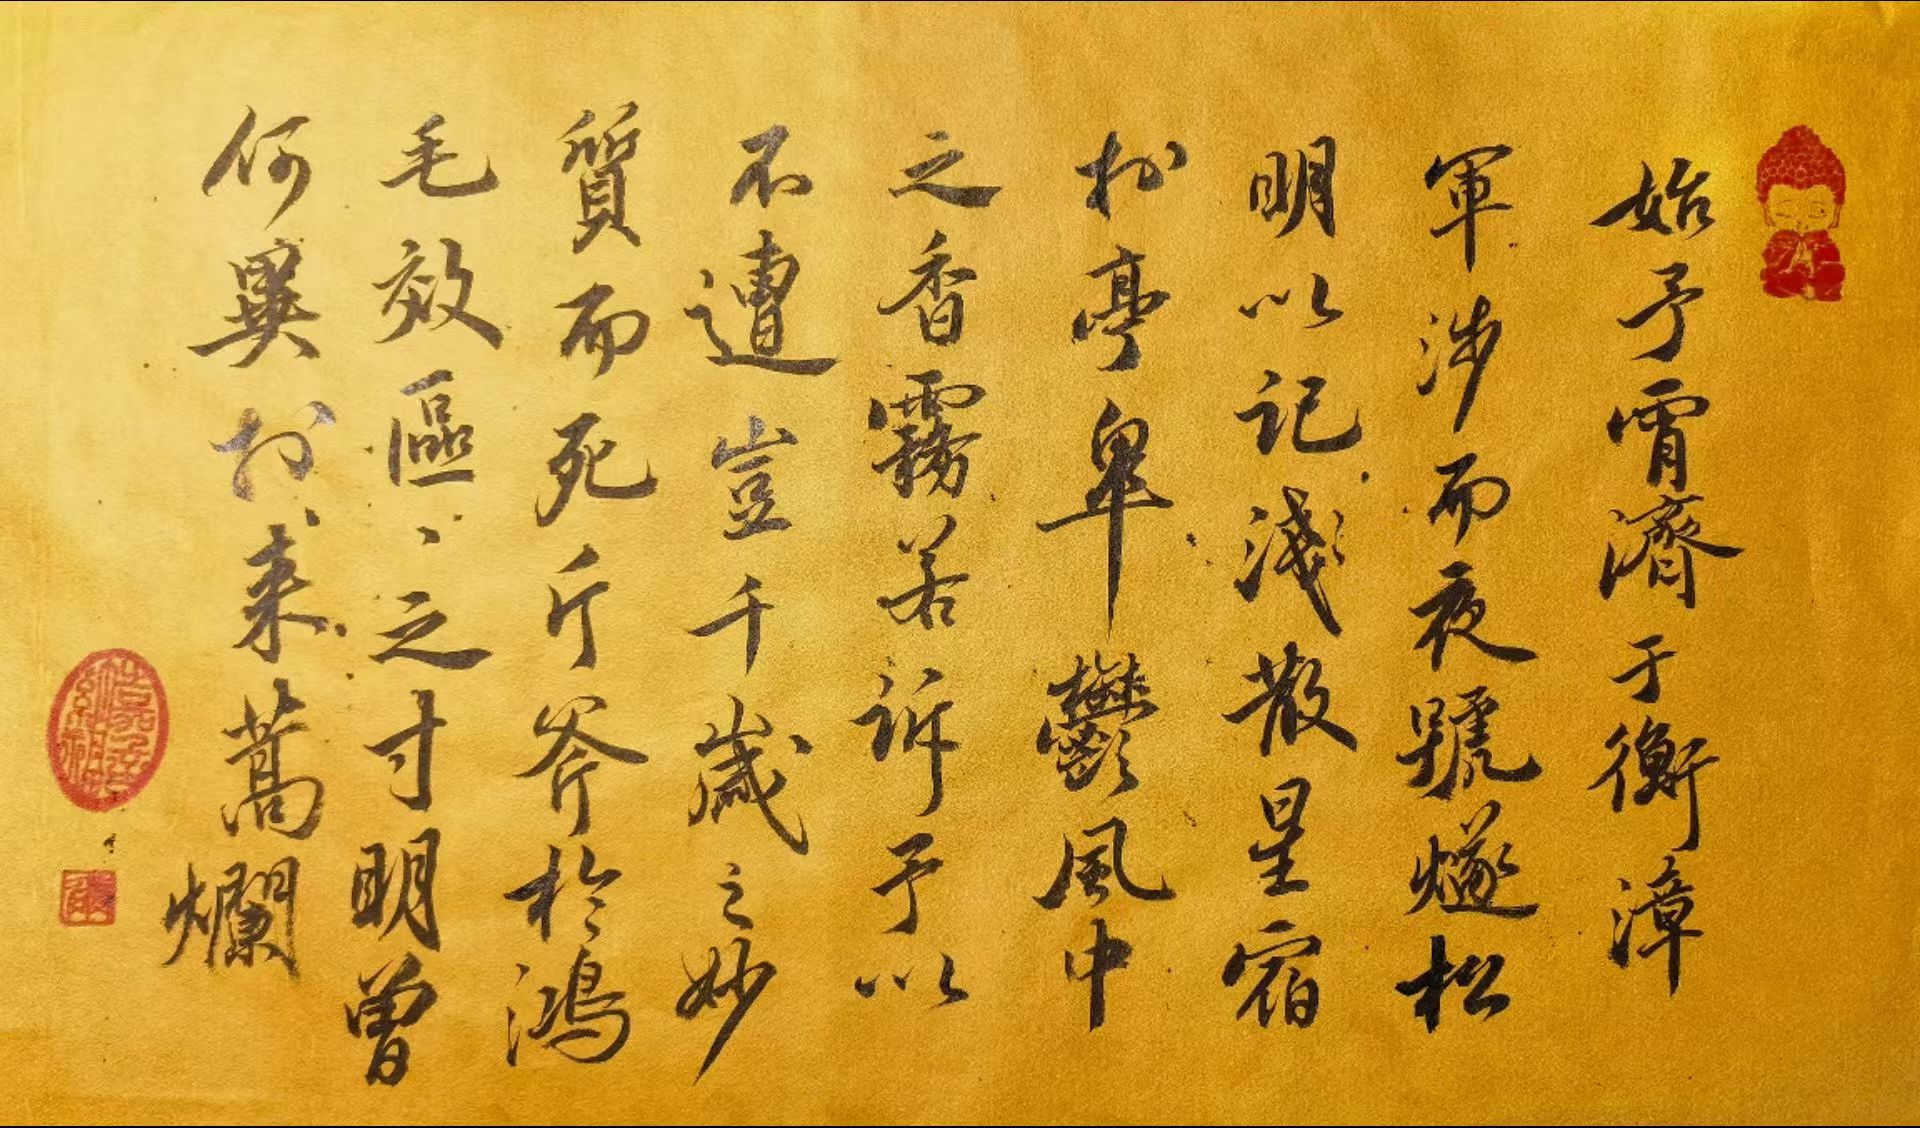 始予宵濟于衡漳
軍涉而夜號燧松
明以記淺散星宿
於亭皐鬱風中
之香霧若訴予以
不遭豈千歲之妙
質而死斤斧於鴻
毛效區、之寸明曾
何異於束蒿爛